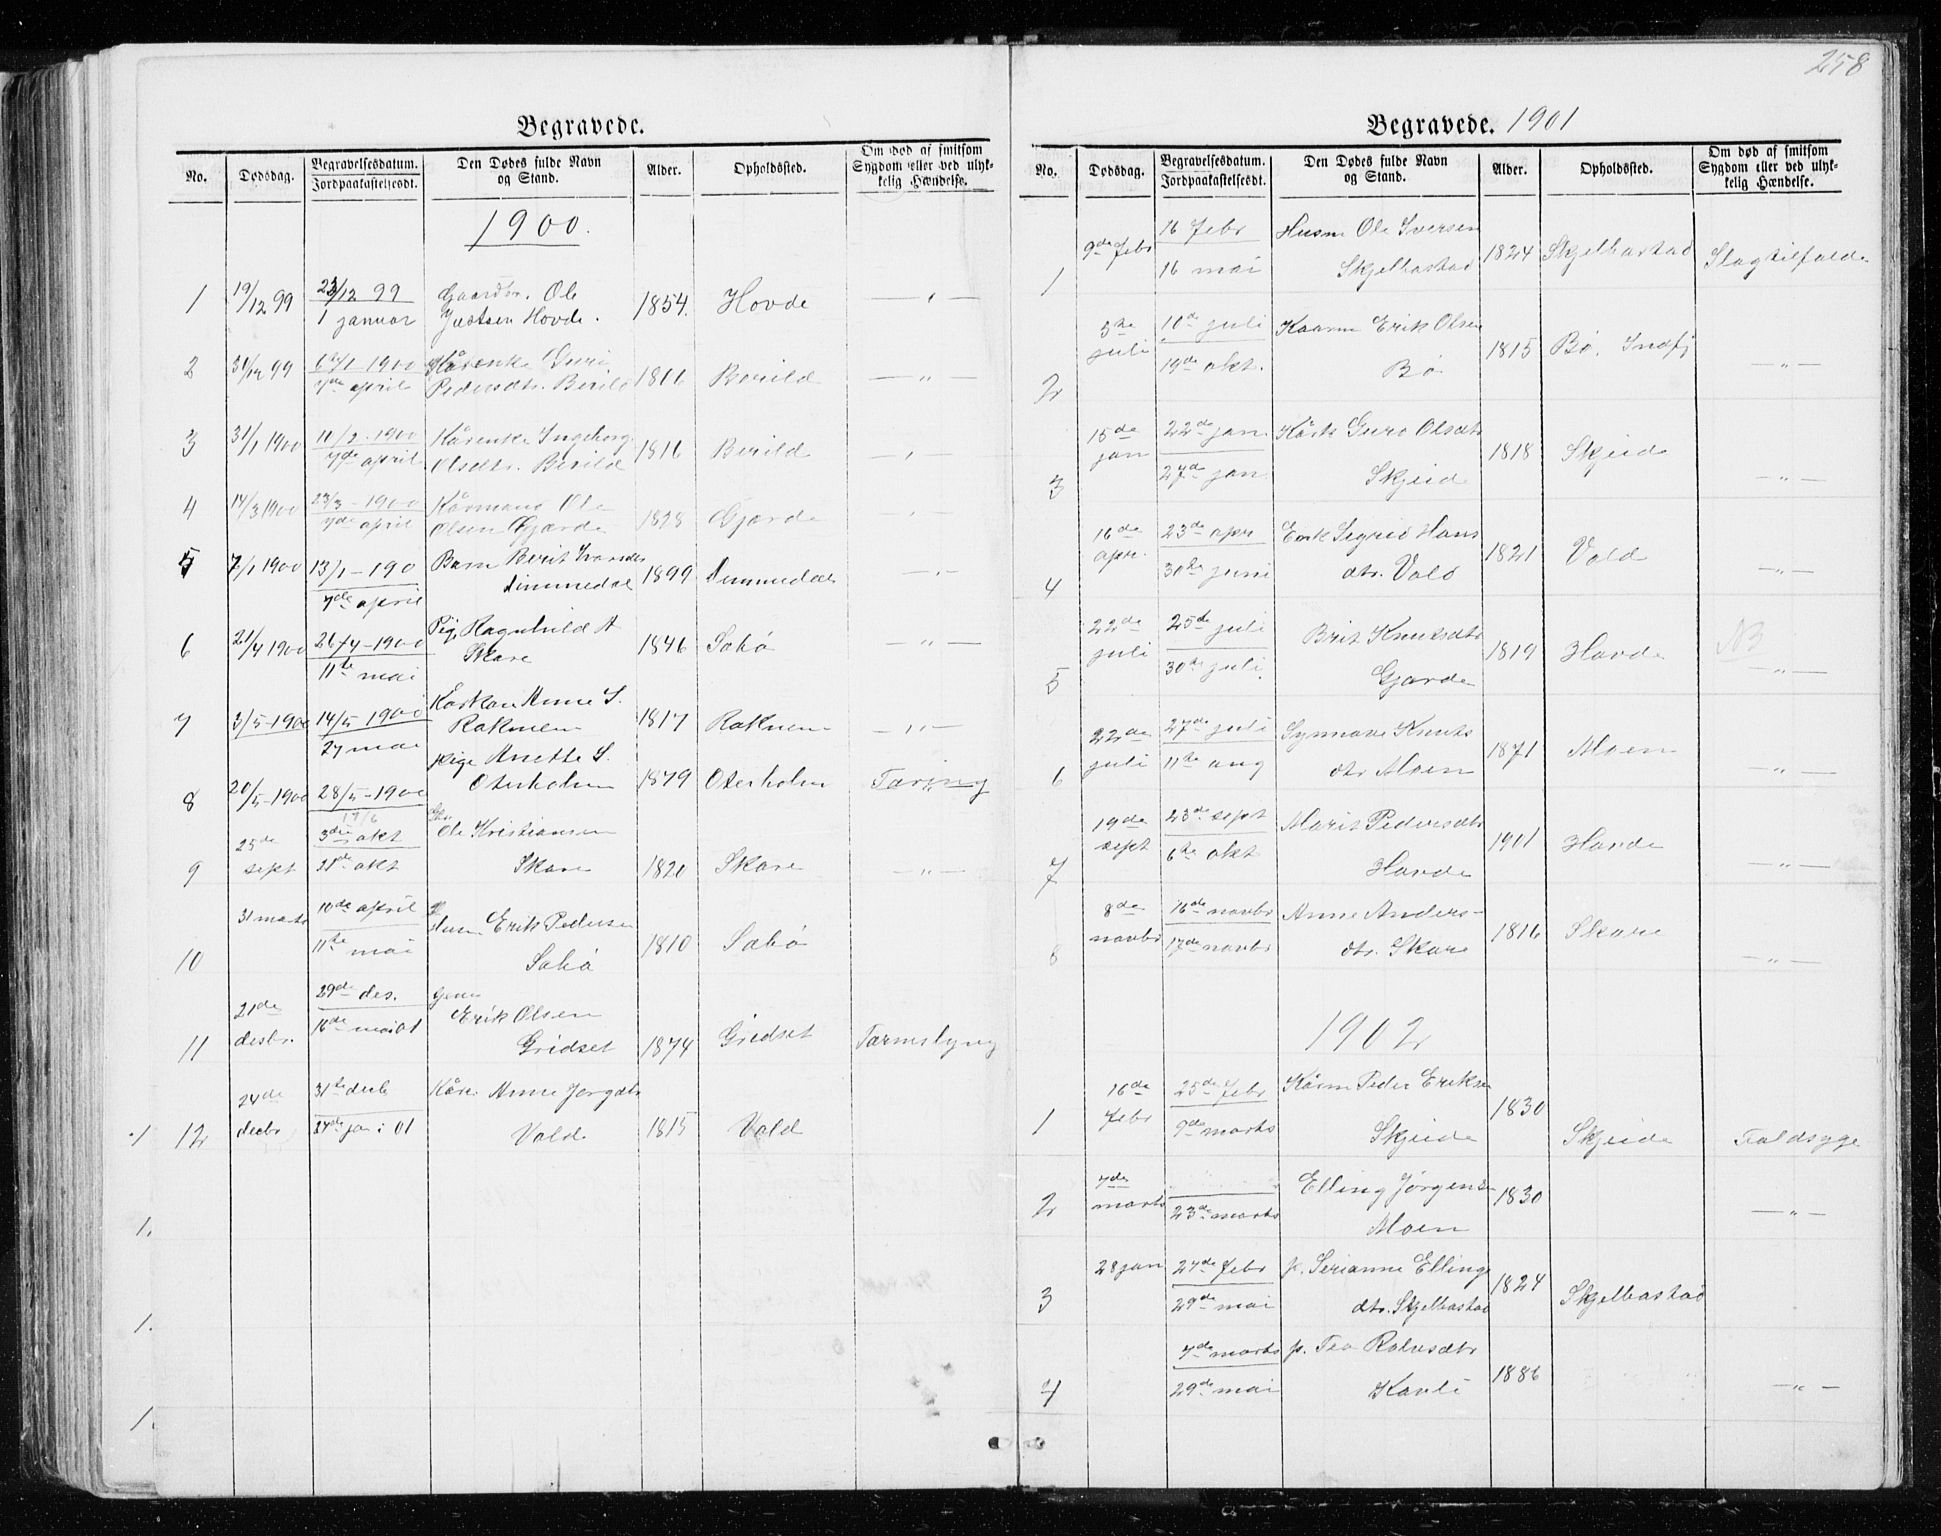 258
Begravede.
No.
Dødsdag.
Begravelsesdatum.
Jordpaakastelsesdt.
Den Dødes fulde Navn
og Stand.
Alder.
Opholdssted.
Om død af smitsom
Sygdom eller ved ulyk-
kelig Hændelse.
1900.
1 19/12 99 23/12 99 Gaardbr. Ole 1854. Hovde — " —
1 januar Justsen Hovde.
2 31/12 99 6/1 - 1900 Kårenke Guri 1816 Berild — " —
7de april Pedersdtr. Berild
3 31/1 1900 10/2 - 1900 Kårenke Ingeborg 1816 Berild — " —
7de april Olsdtr. Berild
4 14/3 1900 23/3 - 1900 Kårmand Ole 1828 Gjærde — " —
7de april Olsen Gjærde
5 7/1 1900 13/1 - 190 Barn Berit Ivarsdtr 1899 — " —
7de april
6 21/4 1900 26/4 - 1900 Pig. Ragnhild A 1846 Sæbø — " —
11te mai Skare
7 3/5 - 1900 14/5 1900 Anne S. 1817 Raknem — " —
27 mai Raknem
8 20/5 - 1900 28/5 - 1900 pige Anette S. 1879 Oterholm Tæring
17/6 Oterholm
9 25de sept 3die okt Ole Kristiansen 1820 Skare — " —
21de okt Skare
10 31 marts 10de april Erik Pedersen 1810 Sæbø
11te mai Sæbø
11 21de desbr. 29de des. Erik Olsen 1874 Gridset Tarmslyng
16de mai 01 Gridset
12 24de desbr 31te desb Anne Jørgdtr 1815 Vold
jan: 01 Vold
1.
1.
1.
Begravede. 1901
No.
Dødsdag.
Begravelsesdatum.
Jordpaakastelsesdt.
Den Dødes fulde Navn
og Stand.
Alder.
Opholdssted.
Om død af smitsom
Sygdom eller ved ulyk-
kelig Hændelse.
1 9de febr 16 febr Husm Ole Iversen 1824 Skjelbastad Slagtilfælde
16 mai Skjelbastad
2 5te juli 10de juli Kaarm Erik Olsen 1815 Bø. Indfj — " —
19de okt. Bø
3 15de jan 22de jan Guro Olsdtr 1818 Skjeide — " —
27de jan Skjeid
4 16de apr. 23de apr Enk Sigrid Hans 1821 Vold — " —
30te juni dtr. Vold
5 22de juli 25de juli Brit Knutsdtr 1819 Hovde NB — " —
30de juli. Gjærde
6 22de juli 27de juli Synnøve Knuts 1871 Moen — " —
11te aug dtr Moen
7 19de sept 23de sept Marit Pedersdtr 1901 Hovde — " —
6te okt Hovde
8 8de novbr 16de novbr Anne Anders- 1816 Skare — " —
17de novbr dtr. Skare
1902
1 16de febr 25de febr Kårm Peder Eriksen 1830 Skjeide Faldsyge
9de marts Skjeide
2 7de marts Elling Jørgensen 1830 — " —
23de marts Moen
3 28 jan 27de febr p. Serianne Ellings 1824 Skjelbastad
29de mai dtr. Skjelbastad
4 7de marts p. Tea Rolvsdtr 1886 — " —
29de mai Kavli